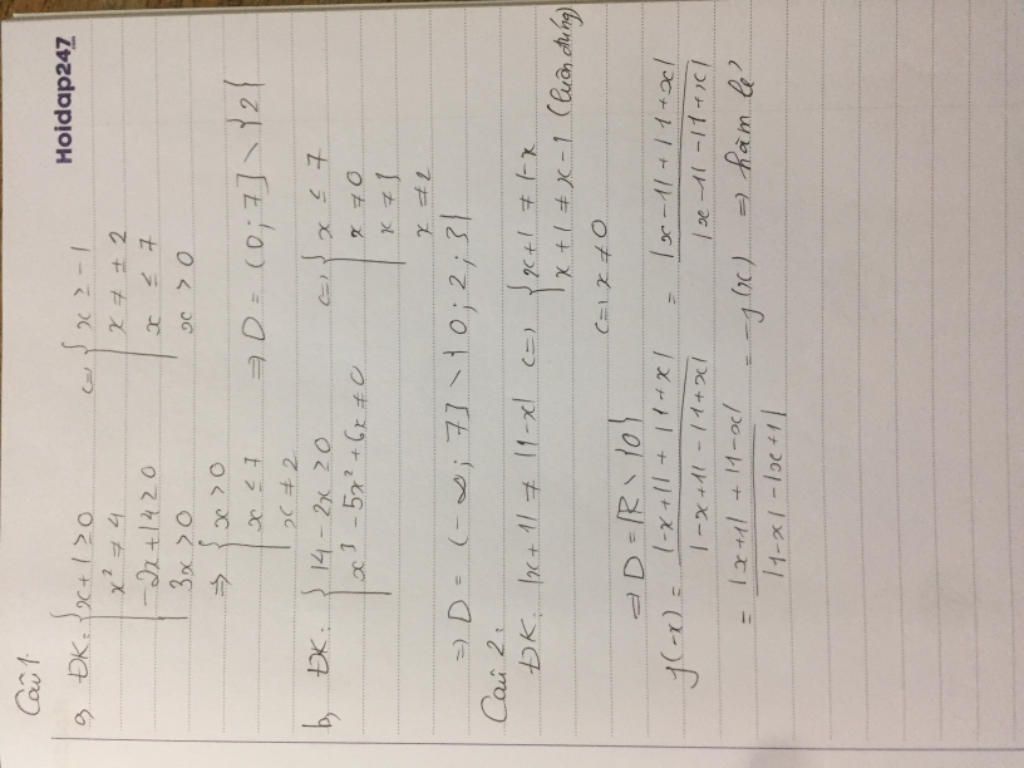 Hoidap247
Câu 1.
a, ĐK: { x+1 ≥ 0 <=> { x ≥ -1
x² ≠ 4 x ≠ ±2
-2x+14 ≥ 0 x ≤ 7
3x > 0 x > 0
=> { x > 0
x ≤ 7 => D = (0; 7] \ {2}
x ≠ 2
b, ĐK: { 14 - 2x ≥ 0 <=> { x ≤ 7
x³ - 5x² + 6x ≠ 0 x ≠ 0
x ≠ 3
x ≠ 2
=> D = (-∞; 7] \ {0; 2; 3}
Câu 2.
ĐK: |x+1| ≠ |1-x| <=> { x+1 ≠ 1-x
x+1 ≠ x-1 (luôn đúng)
<=> x ≠ 0
=> D = R \ {0}
f(-x) = |-x+1| + |1+x| = |x-1| + |1+x|
|-x+1| - |1+x| |x-1| - |1+x|
= |x+1| + |1-x| = -f(x) => hàm lẻ
|1-x| - |x+1|